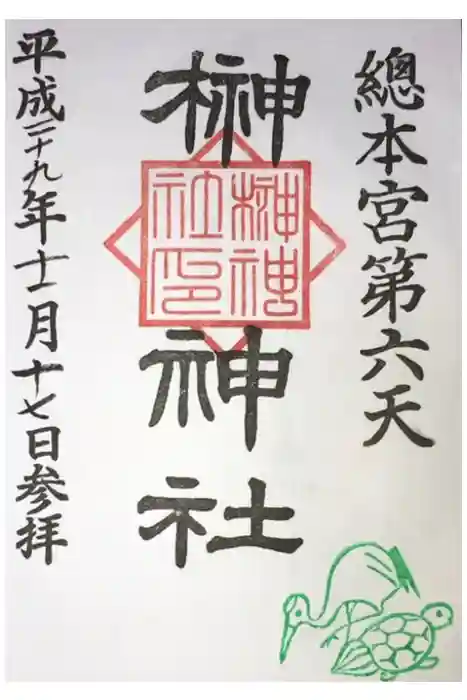 總本宮第六天
榊神社
榊神社印
平成二十九年十一月十七日参拝